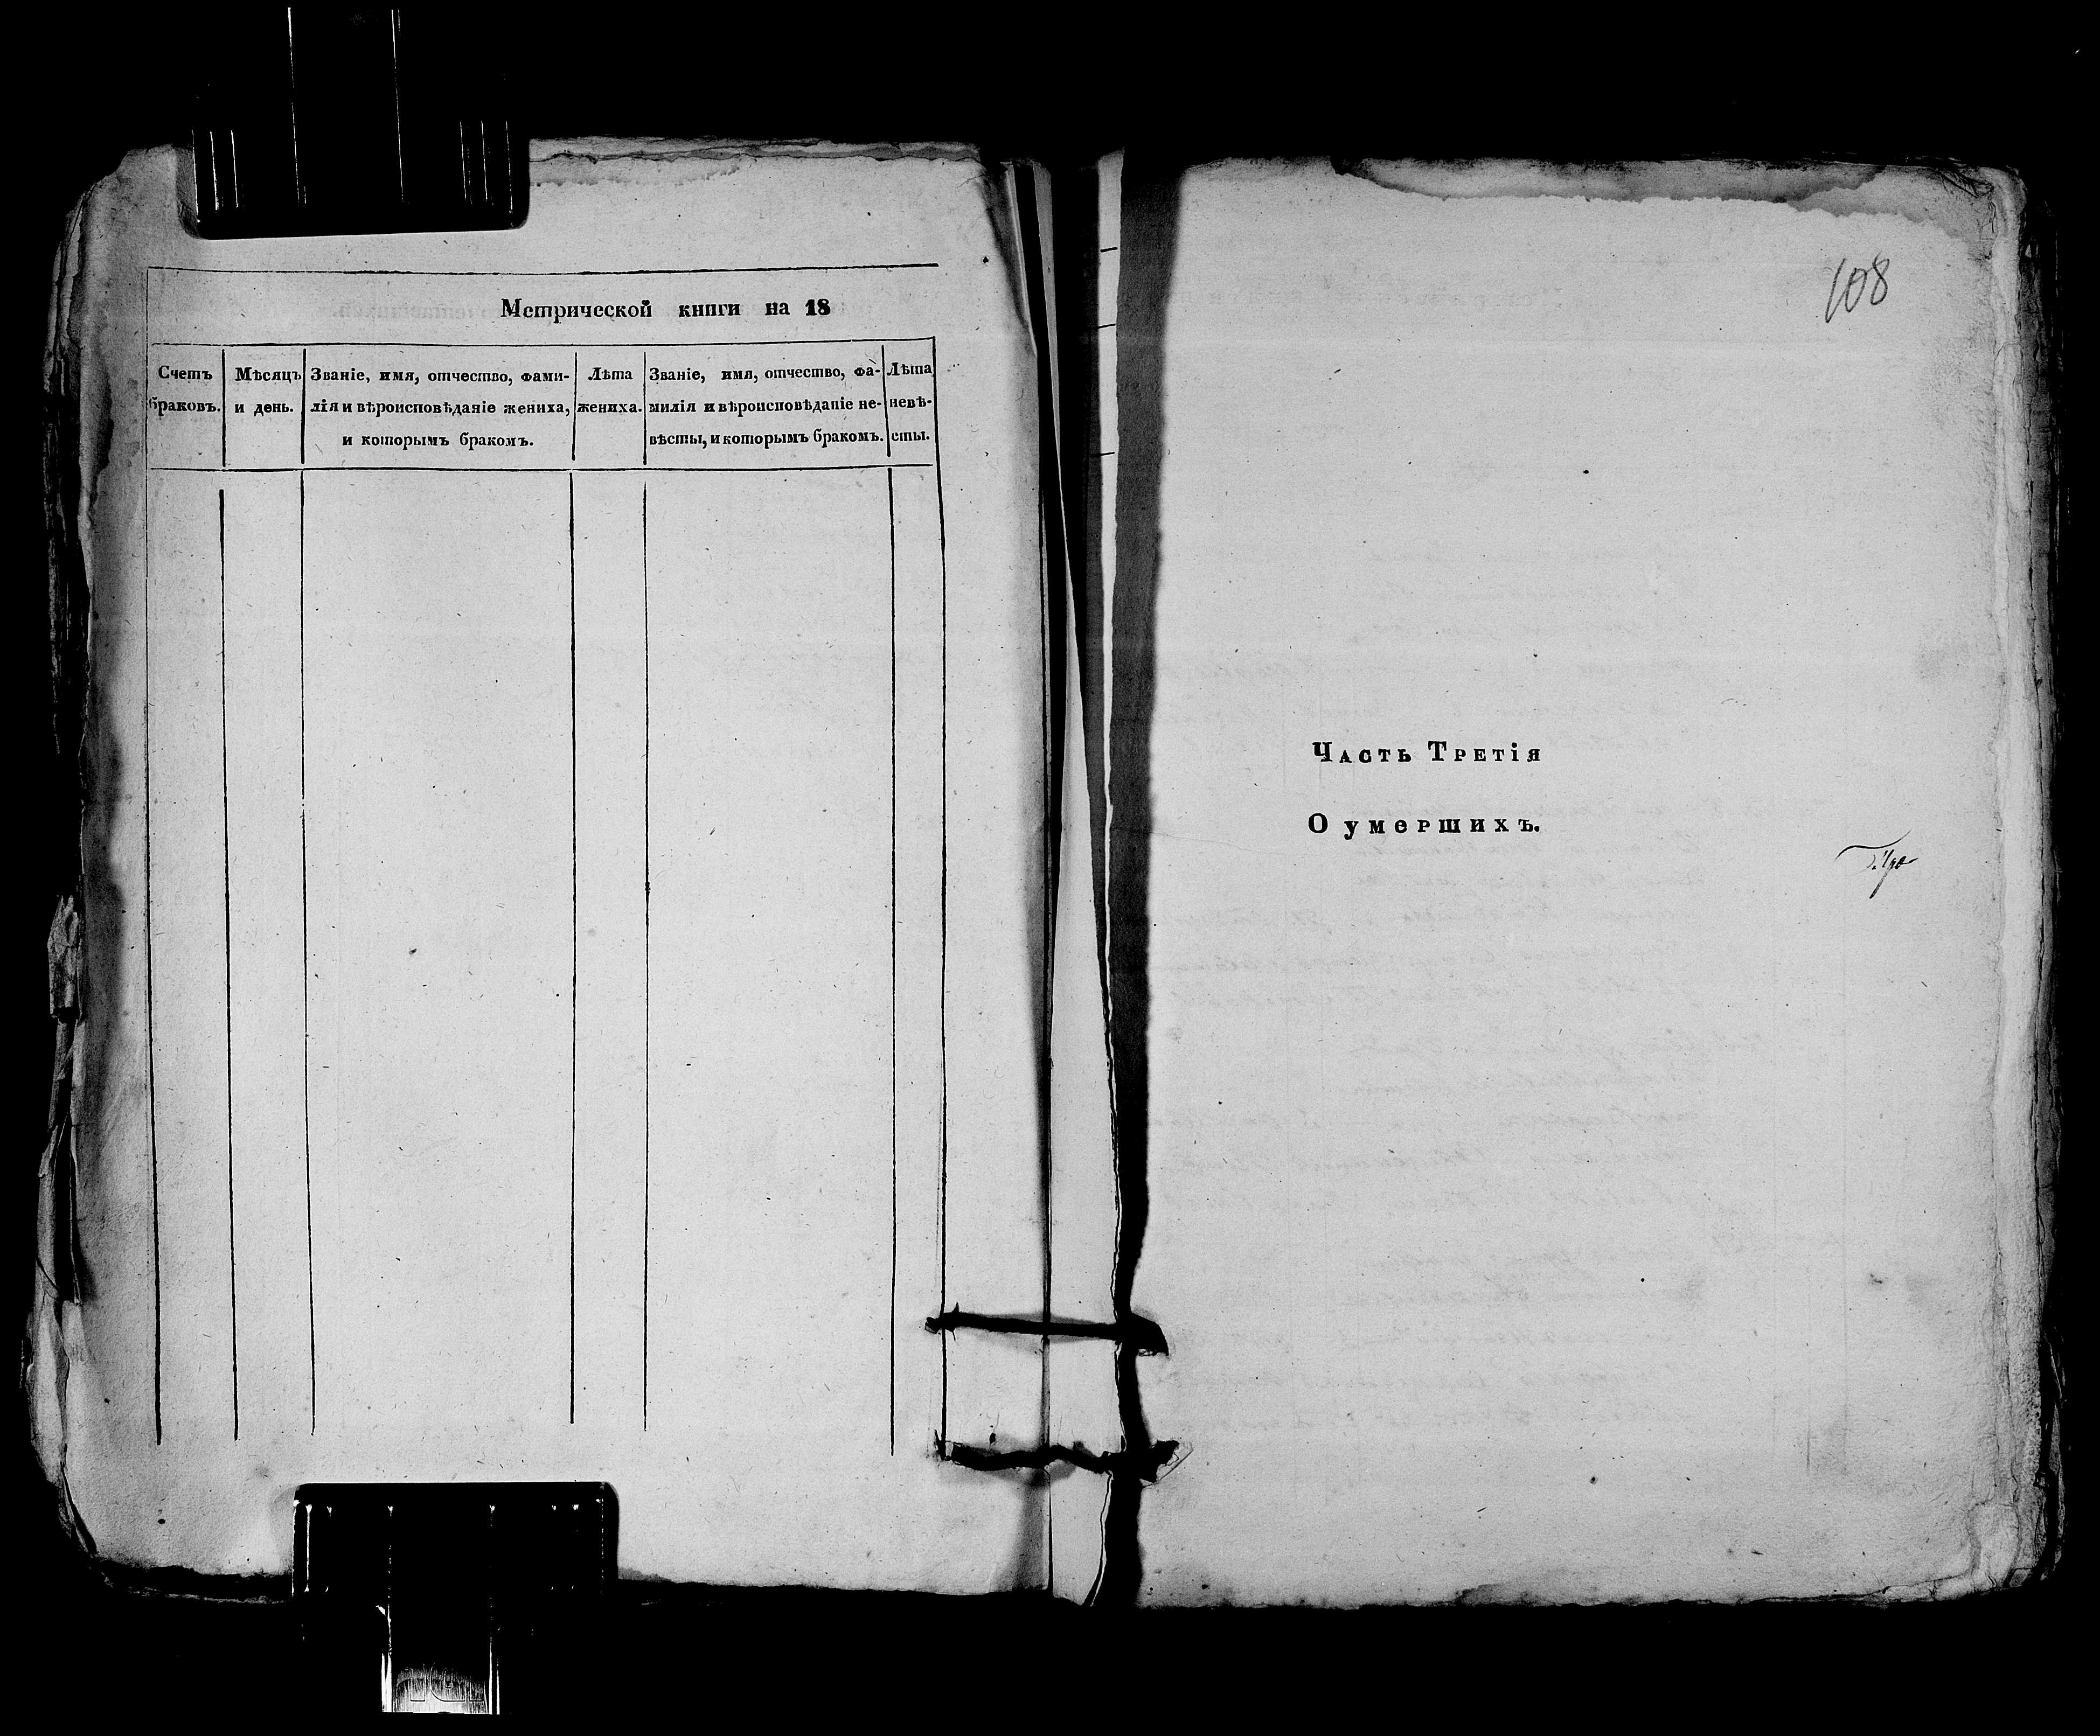 Метрической книги на 18
Счетъ браковъ.
Мѣсяцъ и день.
Званіе, имя, отчество, фами-
лія и вѣроисповѣданіе жениха,
и которымъ бракомъ.
Лѣта
жениха.
Званіе, имя, отчество, фа-
милія и вѣроисповѣданіе не-
вѣсты, и которымъ бракомъ.
Лѣта
невѣ-
сты.
108
Часть Третія
О умершихъ.